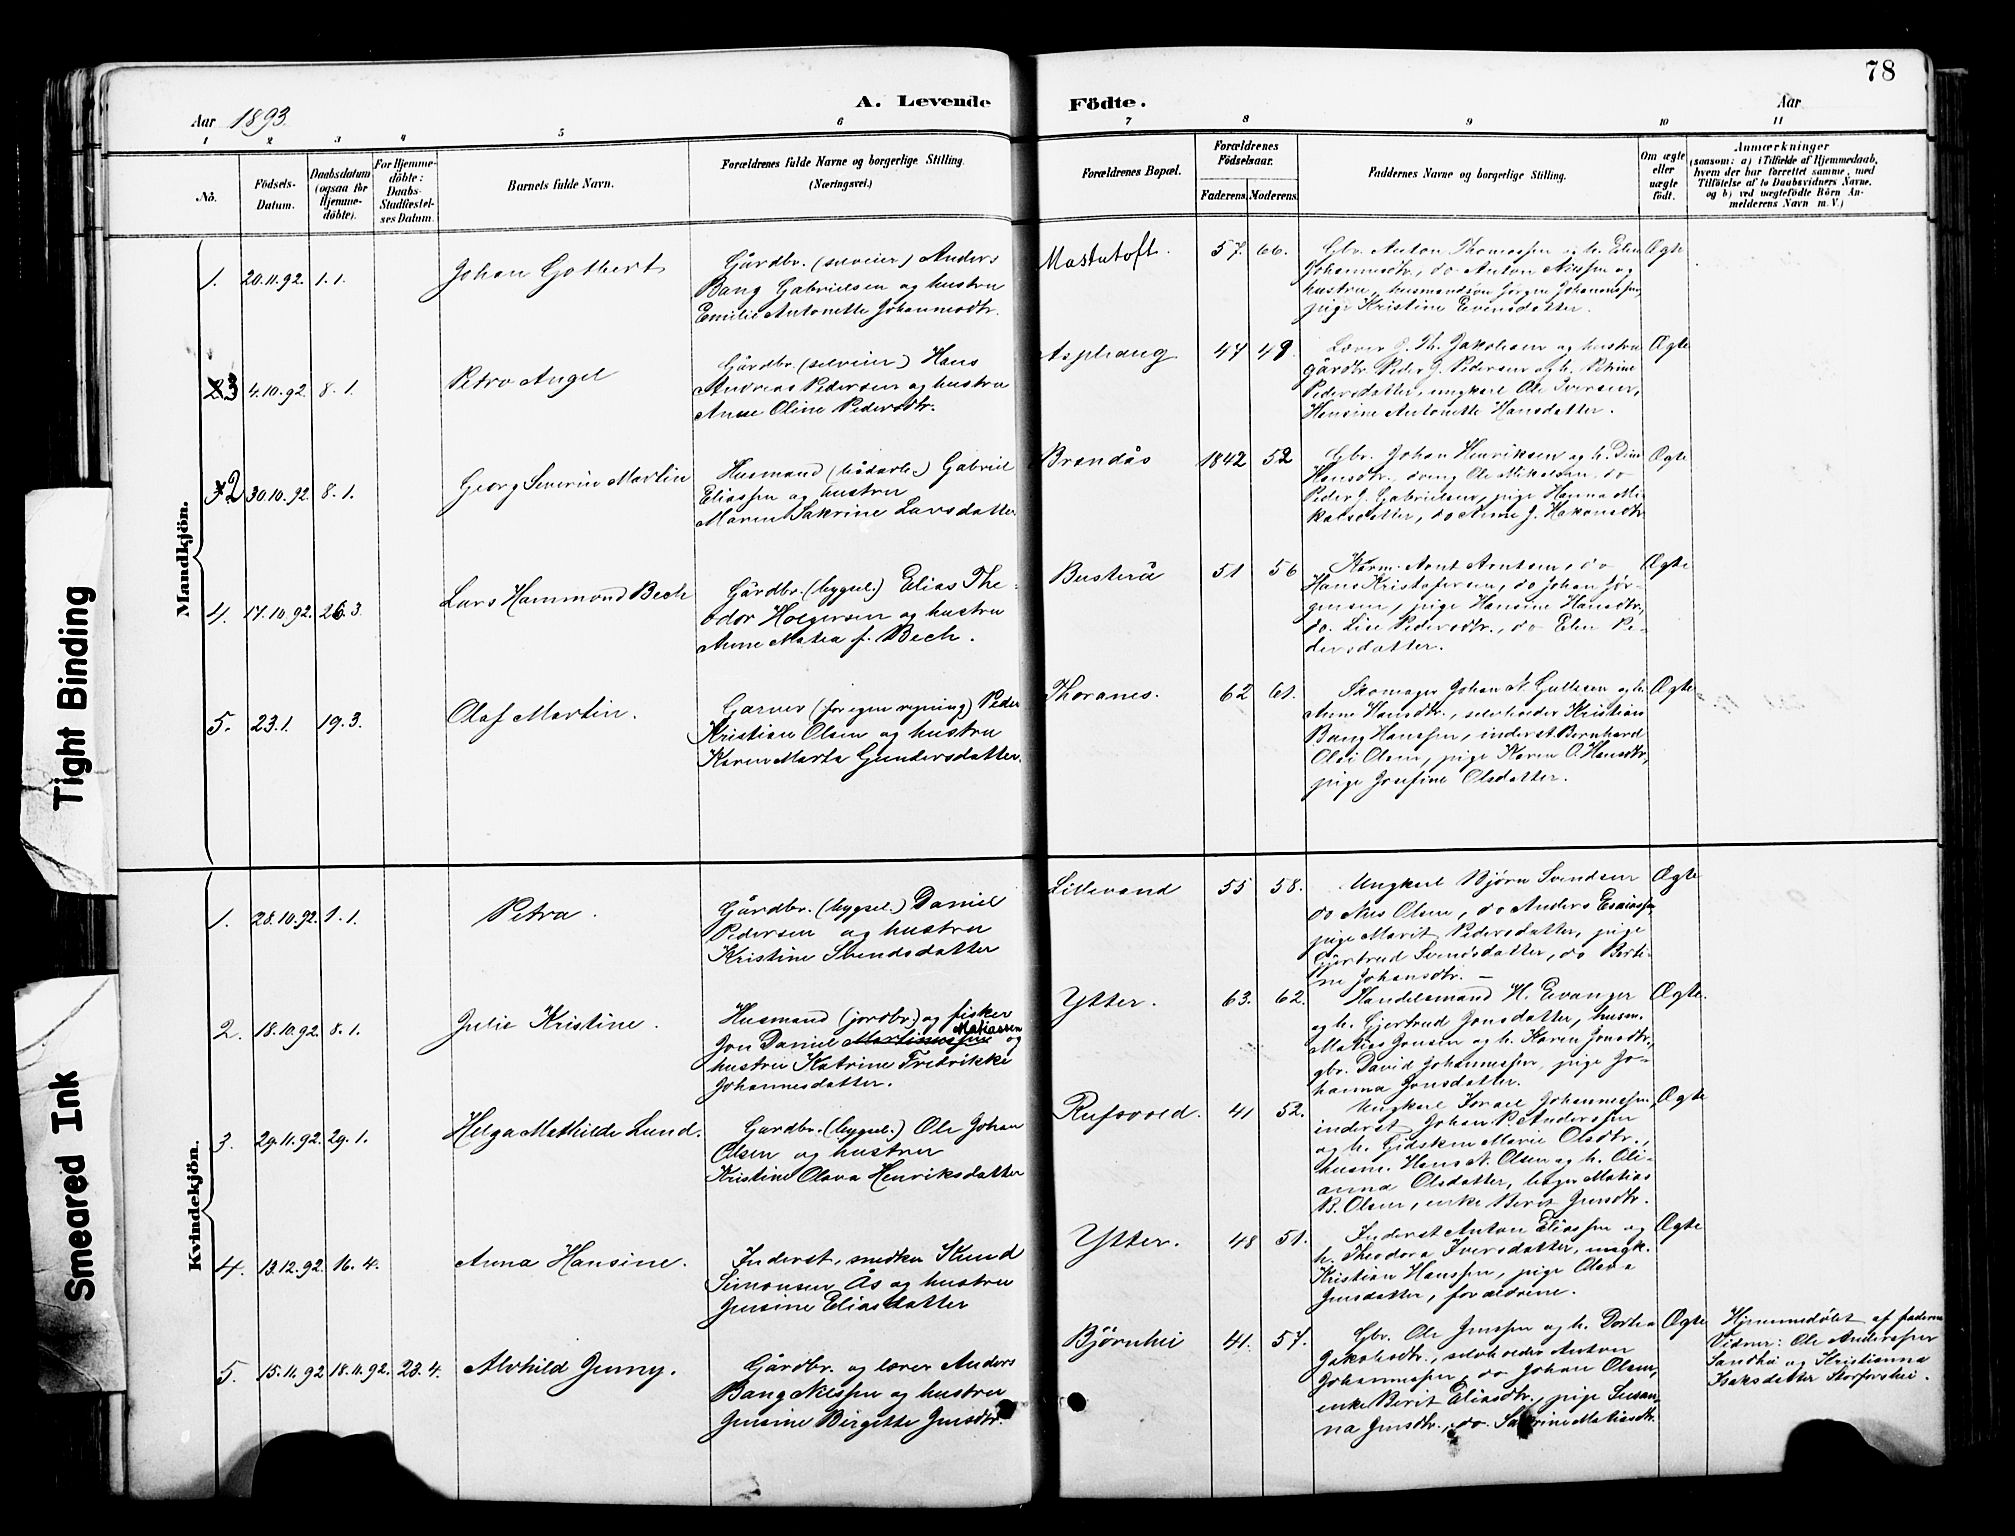 78
A. Levende Födte.
Aar 1893
Aar
1 2 3 4 5 6 7 8 9 10 11
No.
Födsels-Datum.
Daabsdatum (ogsaa for Hjemme-döbte).
For Hjemme-döbte: Daabs-Stadfæstel-ses Datum.
Barnets fulde Navn.
Forældrenes fulde Navne og borgerlige Stilling. (Næringsvei.)
Forældrenes Bopæl.
Forældrenes Födselsaar.
Faderens. Moderens.
Faddernes Navne og borgerlige Stilling.
Om ægte eller uægte født.
Anmærkninger
(saasom: a) i Tilfælde af Hjemmedaab,
hvem der har forrettet samme, med
Tilföielse af to Daabsvidners Navne,
og b) ved uægtefödte Börn An-
melderens Navn m. V.)
Mandkjön.
1. 20.11.92. 1.1. Johan Gotbert
Gårdbr. (selveier) Anders
Bang Gabrielsen og hustru
Emilie Antonette Johannesdtr.
57. 66.
Gbr. Anton Thomassen og h. Elen
Johannesdtr., do Anton Nilssen og
hustru, husmandssøn Jörgen Johannessen,
pige Kristine Evensdatter.
Ægte
3 4.10.92 8.1. Petro Angel
Gårdbr. (selveier) Hans
Andreas Pedersen og hustru
Anne Oline Pedersdtr.
Asphaug 47 49.
Lærer J. Th. Jakobsen og hustru
gårdbr. Peder J. Pedersen og h. Petrine
Pedersdatter, ungkarl Ole Iversen,
Hansine Antonette Hansdatter.
Ægte
2 30.10.92 8.1. Georg Severin Martin
Husmand (  ) Gabriel
Eliassen og hustru
Maren Sakrine Larsdatter.
Brendås 1842 52
Gbr. Johan Henriksen og h.
Hansdtr., dreng Ole Mikalsen, do
Peder J. Gabrielsen, pige Hanna Mi-
kalsdatter, do Anne J. Håkonsdtr.
Ægte
4. 17.10.92. 26.3. Lars Hammond Bech
Gårdbr. (bygsel.) Elias The-
odor Holgersen og hustru
Anne Matea f. Bech.
Busterå 51 56
Arnt Arntsen, do
Hans Kristofersen, do Johan Jör-
gensen, pige Hansine Hansdtr.
do. Lise Pedersdtr., do Elen Pe-
dersdatter.
Ægte
5. 23.1. 19.3. Olaf Martin.
Garver (for egen regning) Peder
Kristian Olsen og hustru
Karen Marta Gundersdatter.
Thoranes. 62 61.
Skomager Johan N. Gullesen og h.
Anne Hansdtr., selvheder Kristian
Bang Hanssen, inderst Bernhard
Olai Olsen, pige Karen O. Hansdtr,
pige Josefine Olsdatter.
Ægte
Kvindekjön.
1. 28.10.92. 1.1. Petra.
Gårdbr. (bygsel.) Daniel
Pedersen og hustru
Kristine Svendsdatter
Lillevand 55 58.
Ungkarl Bjørn Svendsen
do Nils Olsen, do Anders Esaiassen
pige Marit Pedersdatter, pige
Gjertrud Svendsdatter, do Berti-
ne Johansdtr. –
Ægte
2. 18.10.92 8.1. Julie Kristine.
Husmand (jordbr.) og fisker
Jon Daniel Martinussen Matiassen og
hustru Katrine Fredrikke
Johannesdatter.
Ytter. 63. 62.
Handelsmand H. Evanger
og h. Gjertrud Jonsdatter, husm.
Matias Jonsen og h. Karen Jonsdtr.,
gbr. David Johannessen, pige Jo-
hanna Jonsdatter.
Ægte.
3. 29.11.92. 29.1. Helga Mathilde Lund.
Gardbr. (bygsel.) Ole Johan
Olsen og hustru
Kristine Olava Henriksdatter
Rufsvold. 41 52.
Ungkarl Israel Johannessen,
inderst Johan P. Anderssen
og h. Gidsken Marie Olsdtr.,
husm. Hans N. Olsen og h. Oli-
anna Olsdatter, Matias
B. Olsen, enke Berit Jensdtr.
Ægte
4. 13.12.92. 16.4. Anna Hansine.
Inderst, snedker Knud
Simonsen Ås og hustru
Jensine Eliasdatter
Ytter. 48 51.
Inderst Anton Eliassen og
h. Theodora Iversdatter, ungk.
Kristian Hanssen, pige Olava
Jensdatter, forældrene.
Ægte
5. 15.11.92 18.11.92. 23.4. Alvhild Jenny.
Gårdbr. og lærer Anders
Bang Nilssen og hustru
Jensine Birgitte Jensdtr.
Bjørnhei 41. 57.
Gbr. Ole Jenssen og h. Dortea
Jakobsdtr., selvheder Anton
Johannessen, do Johan Olsen,
enke Berit Eliasdtr., pige Susan-
na Jensdtr., do. Sakrine Matiasdtr.
Ægte
Hjemmedøbt af faderen
Vidner: Ole Anderssen
Sandhei og Kristianna
Isaksdatter Storforshei.
Tight Binding
Smeared Ink